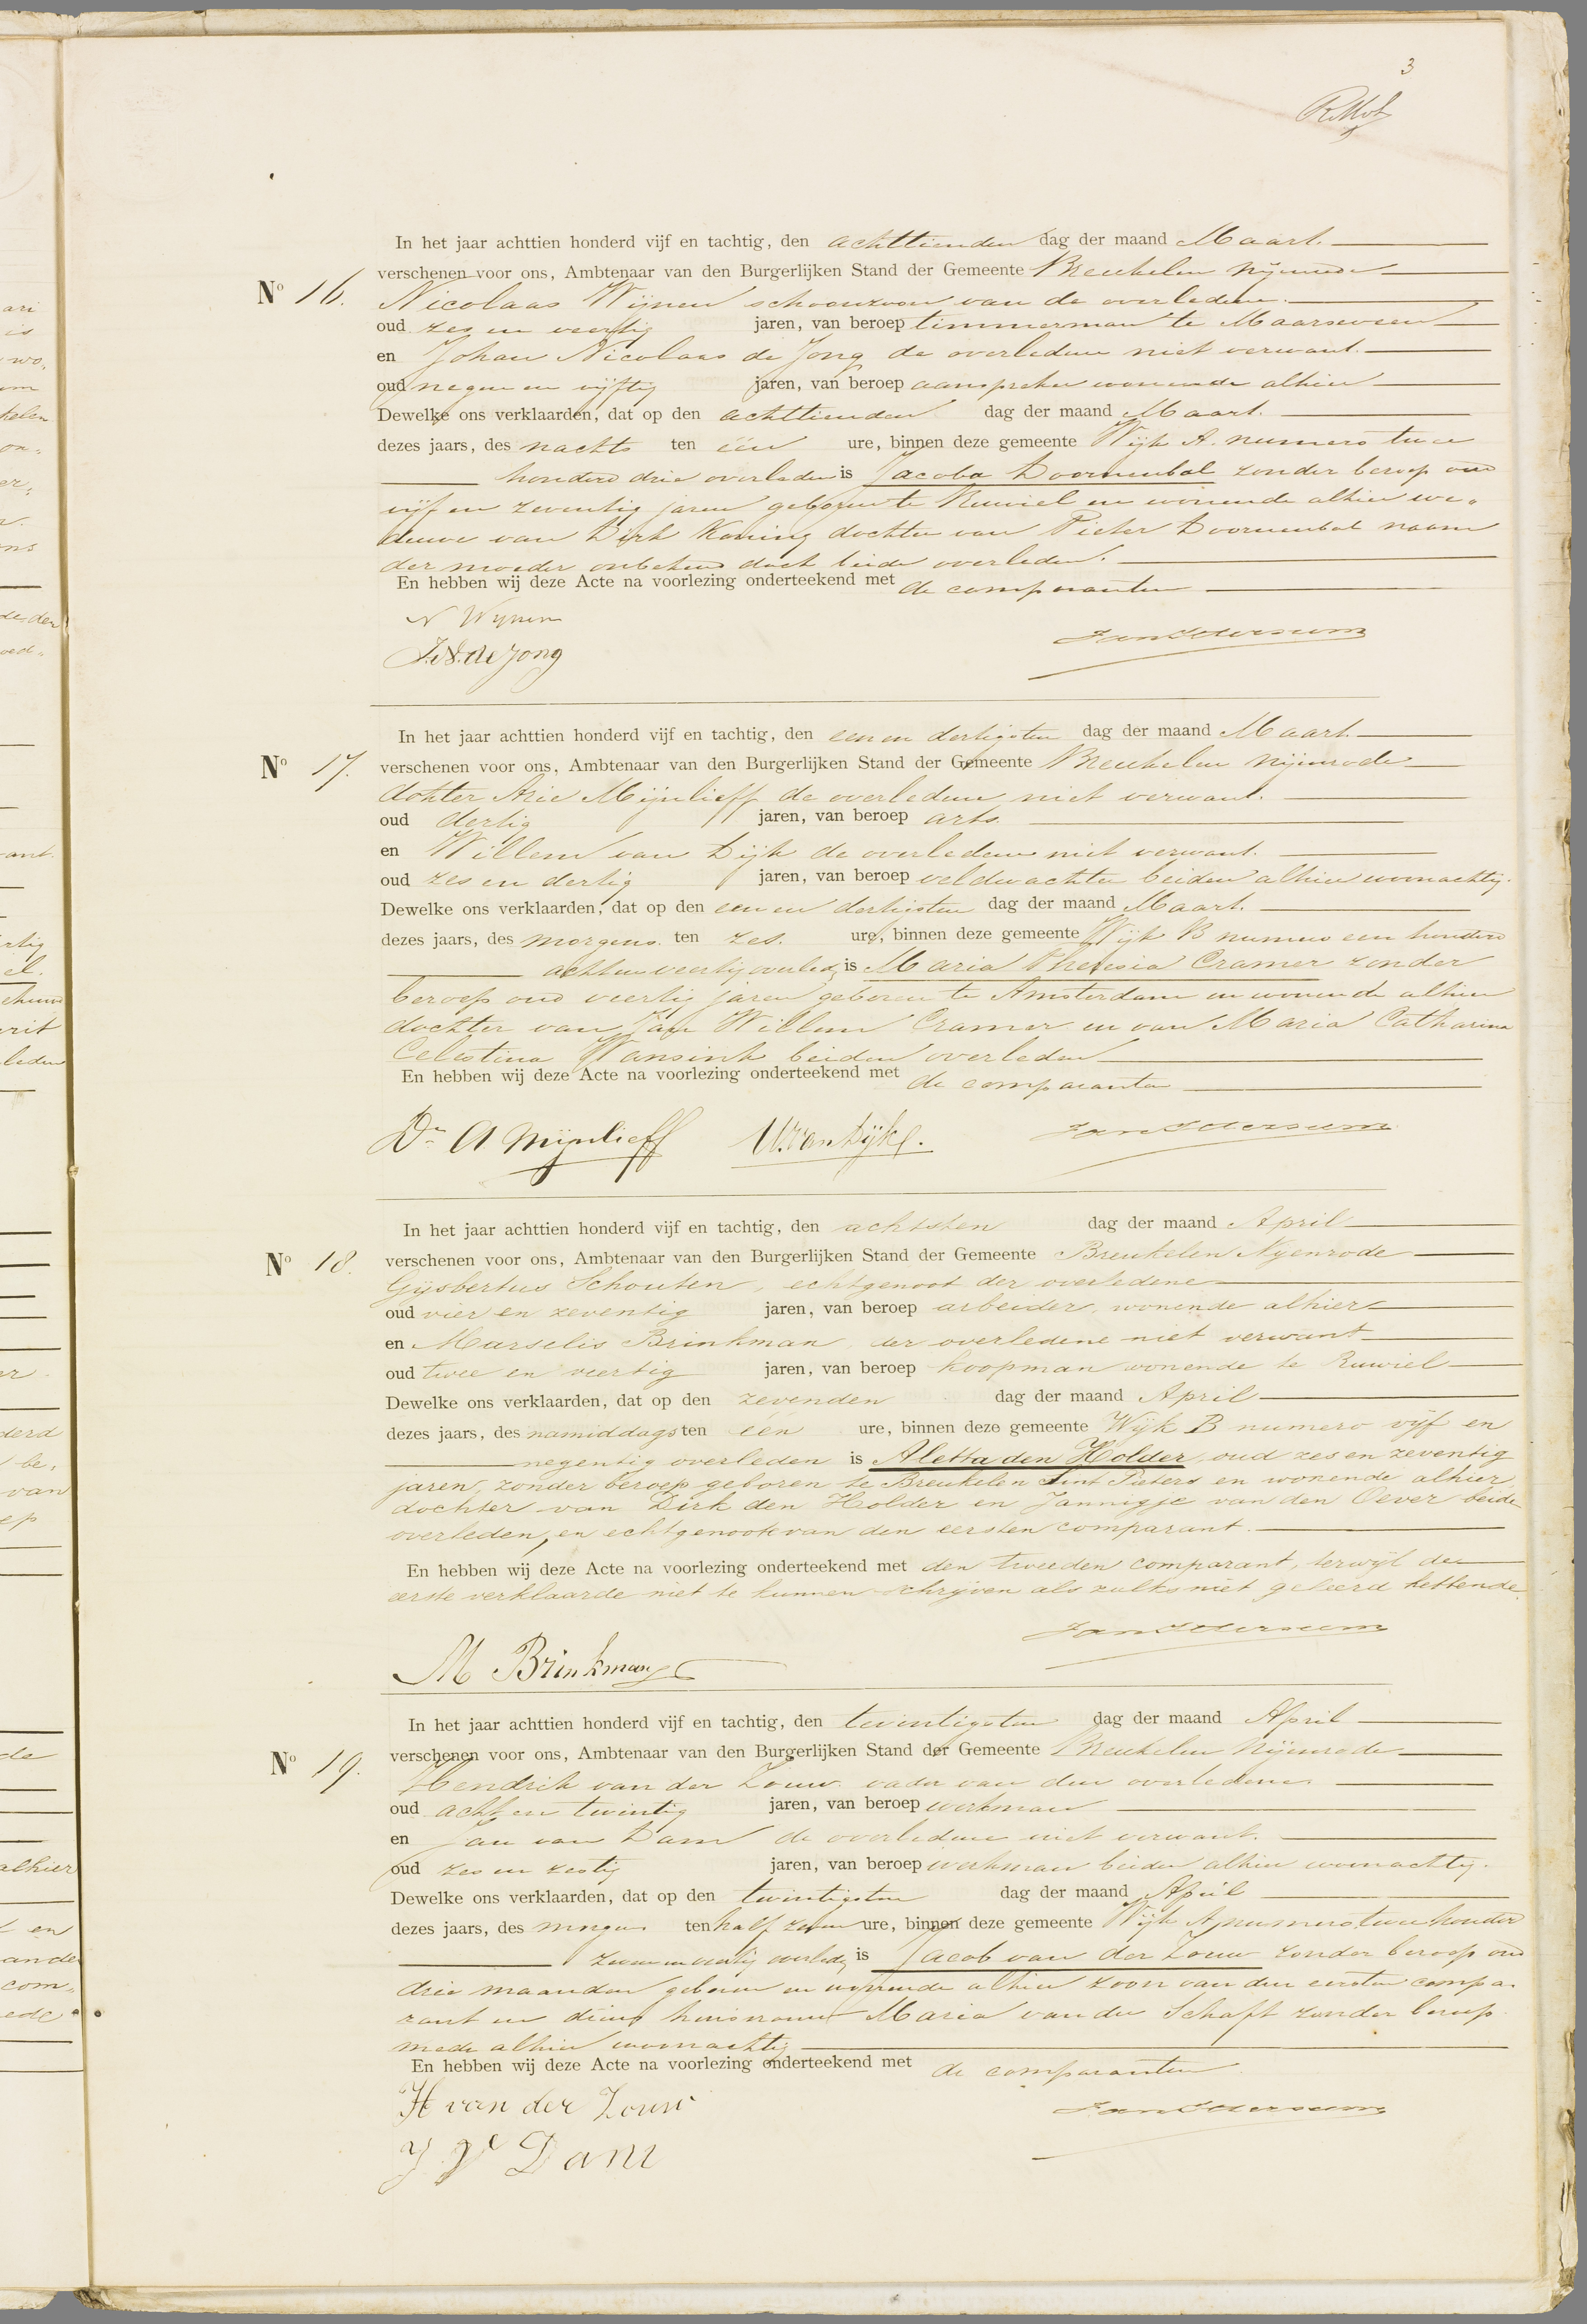 3
In het jaar achttien honderd vijf en tachtig, den achttienden dag der maand Maart.
verschenen voor ons, Ambtenaar van den Burgerlijken Stand der Gemeente Breukelen Nijenrode
No 16. Nicolaas Wijnen schoonzoon van de overledene.
oud zes en veertig jaren, van beroep timmerman te Maarseveen
en Johan Nicolaas de Jong de overledene niet verwant.
oud negen en vijftig jaren, van beroep aanspreker wonende alhier
Dewelke ons verklaarden, dat op den achttienden dag der maand Maart.
dezes jaars, des nachts ten één ure, binnen deze gemeente Wijk A. numero twee
honderd drie overleden is Jacoba Doornenbal zonder beroep oud
vijf en zeventig jaren geboren te Ruwiel en wonende alhier we„
duwe van Dirk Koning dochter van Pieter Doornenbal naam
der moeder onbekend doch beide overleden.
En hebben wij deze Acte na voorlezing onderteekend met de comparanten
N Wijnen
J.N. de Jong
In het jaar achttien honderd vijf en tachtig, den een en dertigsten dag der maand Maart.
No 17. verschenen voor ons, Ambtenaar van den Burgerlijken Stand der Gemeente Breukelen Nijenrode
dokter Arie Mijnlieff de overledene niet verwant.
oud dertig jaren, van beroep arts.
en Willem van Dijk de overledene niet verwant.
oud zes en dertig jaren, van beroep veldwachter beiden alhier woonachtig.
Dewelke ons verklaarden, dat op den een en dertigsten dag der maand Maart.
dezes jaars, des morgens ten zes. ure, binnen deze gemeente Wijk B numero een honderd
acht en veertig overleden is Maria Theresia Cramer zonder
beroep oud veertig jaren geboren te Amsterdam en wonende alhier
dochter van Jan Willem Cramer en van Maria Catharina
Celestina Wansink beiden overleden
En hebben wij deze Acte na voorlezing onderteekend met de comparanten
Dr A Mijnlieff W. van Dijk.
In het jaar achttien honderd vijf en tachtig, den achtsten dag der maand April
No 18. verschenen voor ons, Ambtenaar van den Burgerlijken Stand der Gemeente Breukelen Nyenrode
Gijsbertus Schouten, echtgenoot der overledene
oud vier en zeventig jaren, van beroep arbeider, wonende alhier
en Marselis Brinkman, der overledene niet verwant
oud twee en veertig jaren, van beroep koopman wonende te Ruwiel
Dewelke ons verklaarden, dat op den zevenden dag der maand April
dezes jaars, des namiddags ten één ure, binnen deze gemeente Wijk B numero vijf en
negentig overleden is Aletta den Holder, oud zes en zeventig
jaren, zonder beroep geboren te Breukelen Sint Pieters en wonende alhier
dochter van Dirk den Holder en Jannigje van den Oever beide
overleden, en echtgenoote van den eersten comparant.
En hebben wij deze Acte na voorlezing onderteekend met den tweeden comparant, terwijl de
eerste verklaarde niet te kunnen schrijven als zulks niet geleerd hebbende.
M Brinkman
In het jaar achttien honderd vijf en tachtig, den twintigsten dag der maand April
No 19. verschenen voor ons, Ambtenaar van den Burgerlijken Stand der Gemeente Breukelen Nijenrode
Hendrik van der Zouw vader van den overledene.
oud acht en twintig jaren, van beroep werkman
en Jan van Dam de overledene niet verwant.
oud zes en zestig jaren, van beroep werkman beiden alhier woonachtig.
Dewelke ons verklaarden, dat op den twintigsten dag der maand April
dezes jaars, des morgens ten half zeven ure, binnen deze gemeente Wijk A numero twee honderd
zeven en veertig overleden is Jacob van der Zouw zonder beroep oud
drie maanden geboren en wonende alhier zoon van den eersten compa„
rant en diens huisvrouw Maria van der Schaft zonder beroep
mede alhier woonachtig
En hebben wij deze Acte na voorlezing onderteekend met de comparanten
H van der Zouw
J v Dam